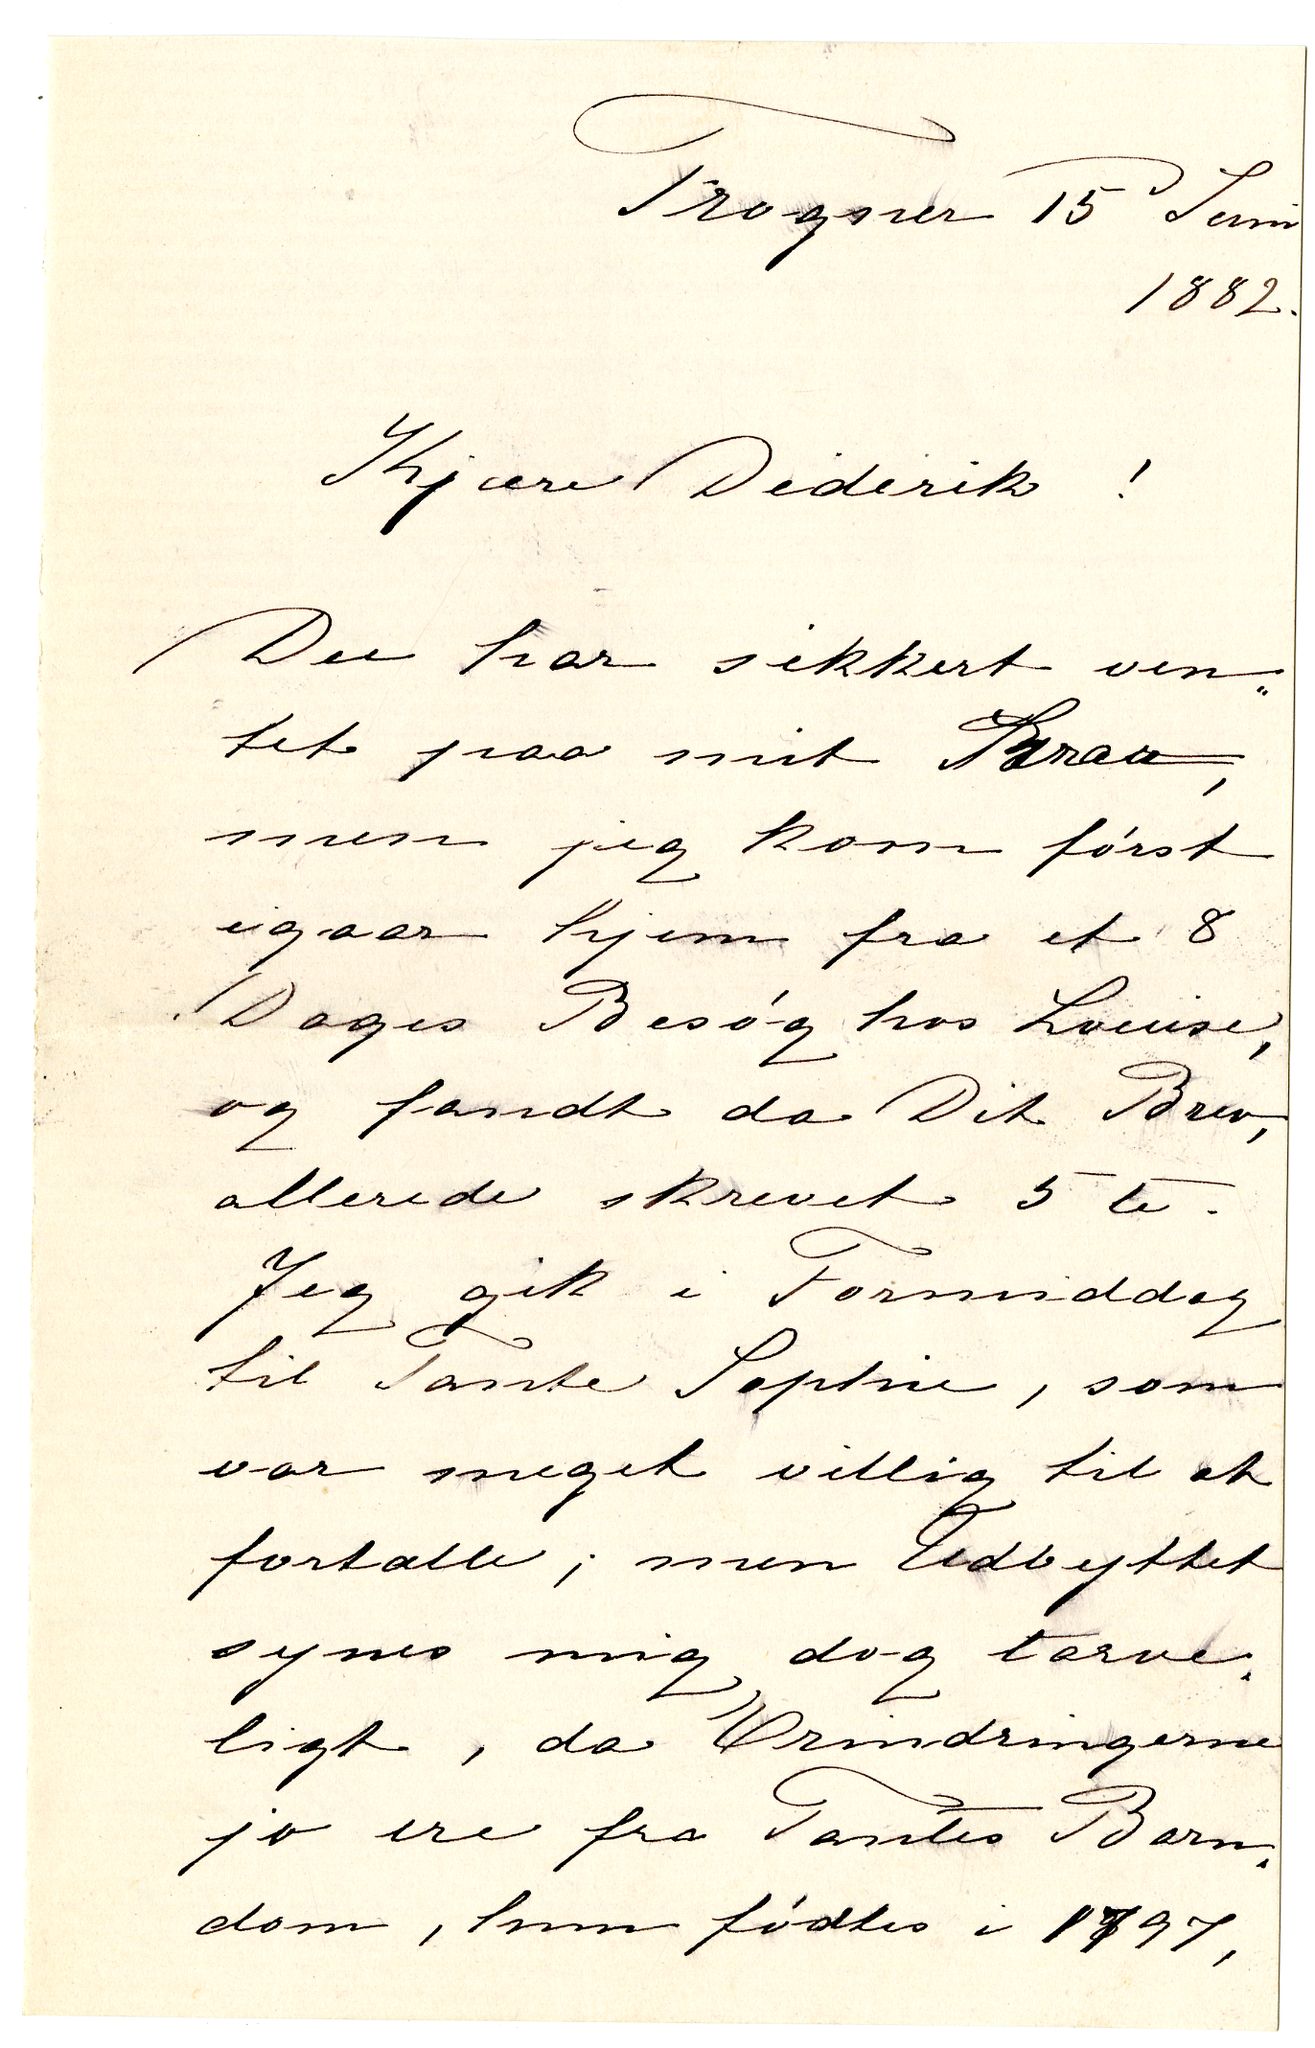 Frogner 15 Juni
1882.
Kjære Diderik!
Du har sikkert ven"
tet paa mit Brev,
men jeg kom först
igaar hjem fra et 8
Dages Besög hos Louise,
og fandt da Dit Brev,
allerede skrevet 5te.
Jeg gik i Formiddag
til Tante Sophie, som
var meget villig til at
fortælle; men Udbyttet
synes mig dog tarve-
ligt, da Erindringerne
jo ere fra Tantes Barn-
dom, hun födtes i 1797,